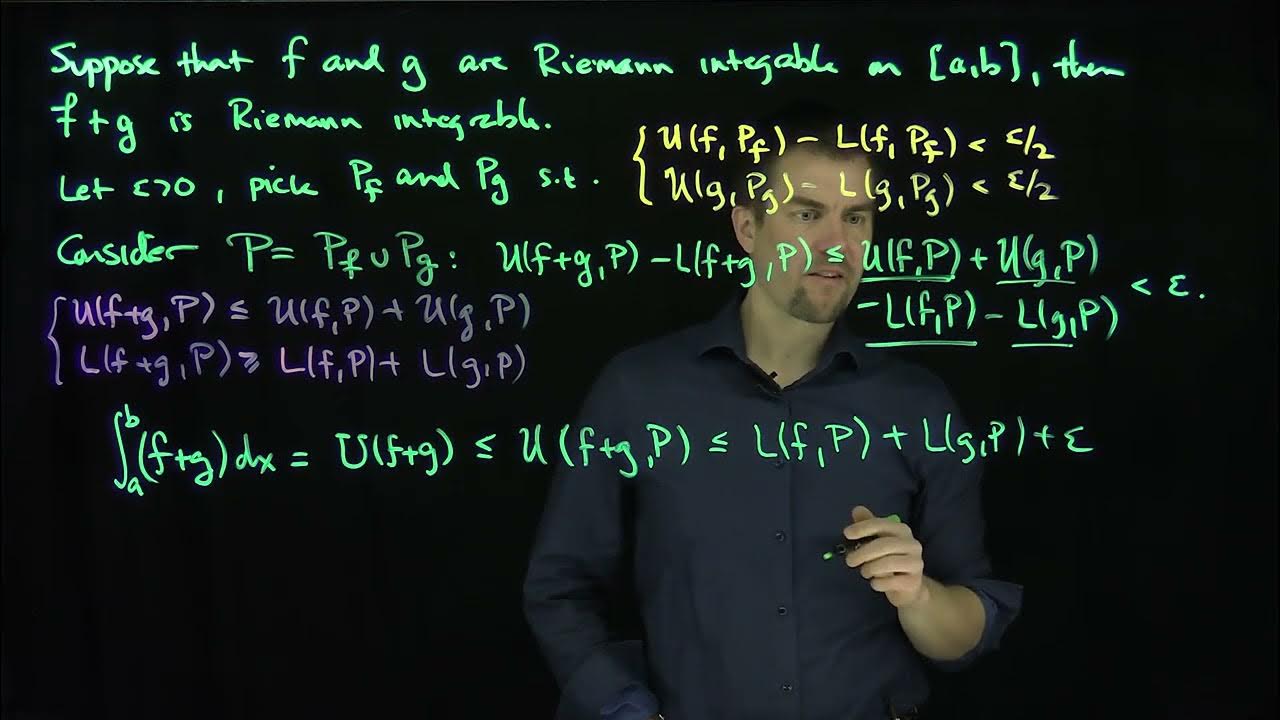 Suppose that f and g are Riemann integrable on [a,b], then
f+g is Riemann integrable.
Let ε>0, pick P_f and P_g s.t. { U(f, P_f) - L(f, P_f) < ε/2
U(g, P_g) - L(g, P_g) < ε/2
Consider P = P_f ∪ P_g : U(f+g, P) - L(f+g, P) ≤ U(f,P) + U(g,P)
- L(f,P) - L(g,P) < ε.
{ U(f+g, P) ≤ U(f,P) + U(g,P)
L(f+g, P) ≥ L(f,P) + L(g,P)
∫_a^b (f+g) dx = U(f+g) ≤ U(f+g, P) ≤ L(f,P) + L(g,P) + ε